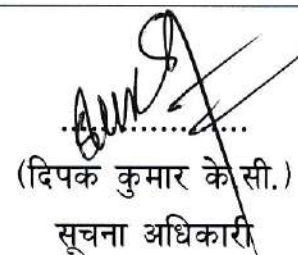 (दिपक कुमार के.सी.)
सूचना अधिकारी